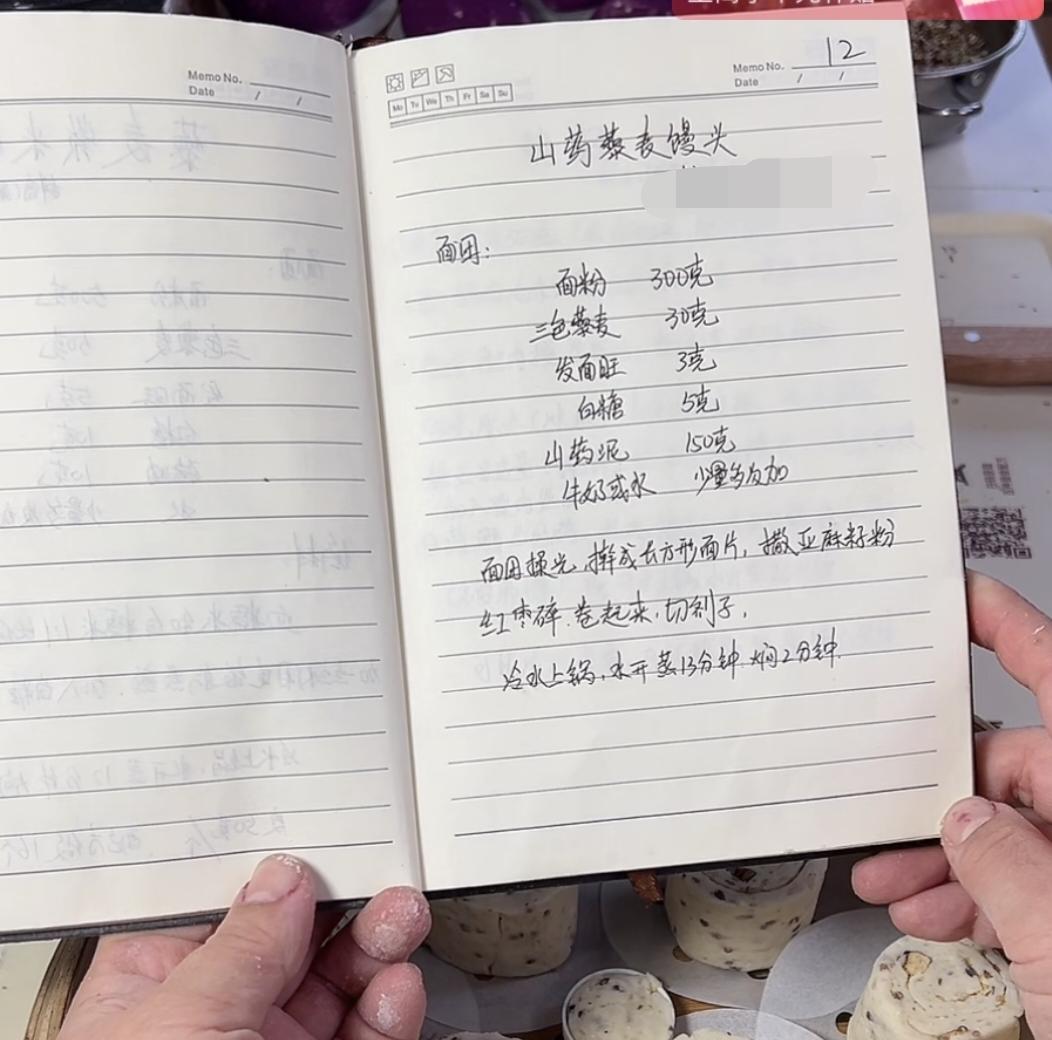 Memo No.
Date / /
Memo No. 12
Date / /
Mo Tu We Th Fr Sa Su
山药藜麦馒头
面团：
面粉 300克
三色藜麦 30克
发面旺 3克
白糖 5克
山药泥 150克
牛奶或水 少量多次加
面团揉光，擀成长方形面片，撒亚麻籽粉
红枣碎.卷起来.切剂子，
冷水上锅，水开蒸13分钟.焖2分钟.